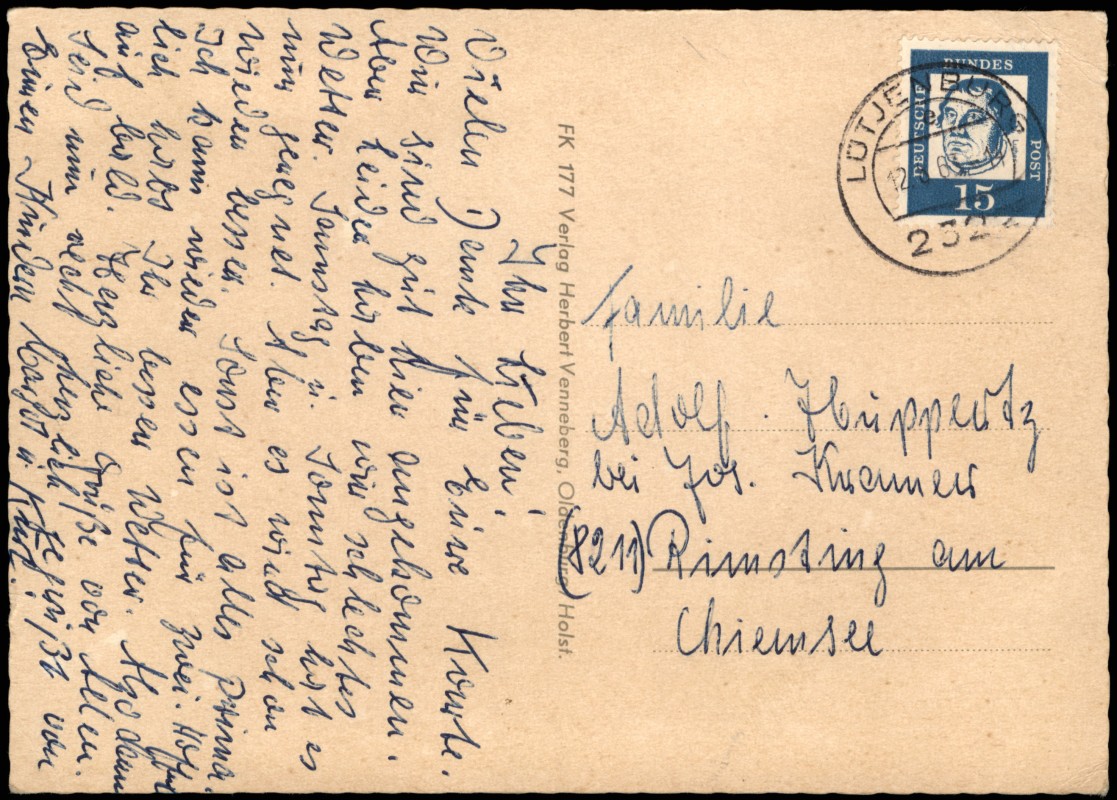 Ihr Lieben!
Vielen Dank für Eure Karte.
Wir sind gut hier angekommen.
Aber leider haben wir schlechtes
Wetter. Samstag u. Sonntag hat es
nur geregnet. Aber es wird schon
wieder besser. Sonst ist alles prima.
Ich kann wieder essen für zwei. Hoffent-
lich habt Ihr besser Wetter. Also dann
auf bald. Herzliche Grüße von Allen.
Seid nun recht herzlich gegrüßt von
Euren Kindern Margot u Kurt.
FK 177 Verlag Herbert Venneberg, Oldenburg/Holst.
DEUTSCHE BUNDES POST
15
LÜTJENBURG
232
Familie
Adolf Huppertz
bei Jos. Kramer
(8211) Rimsting am
Chiemsee